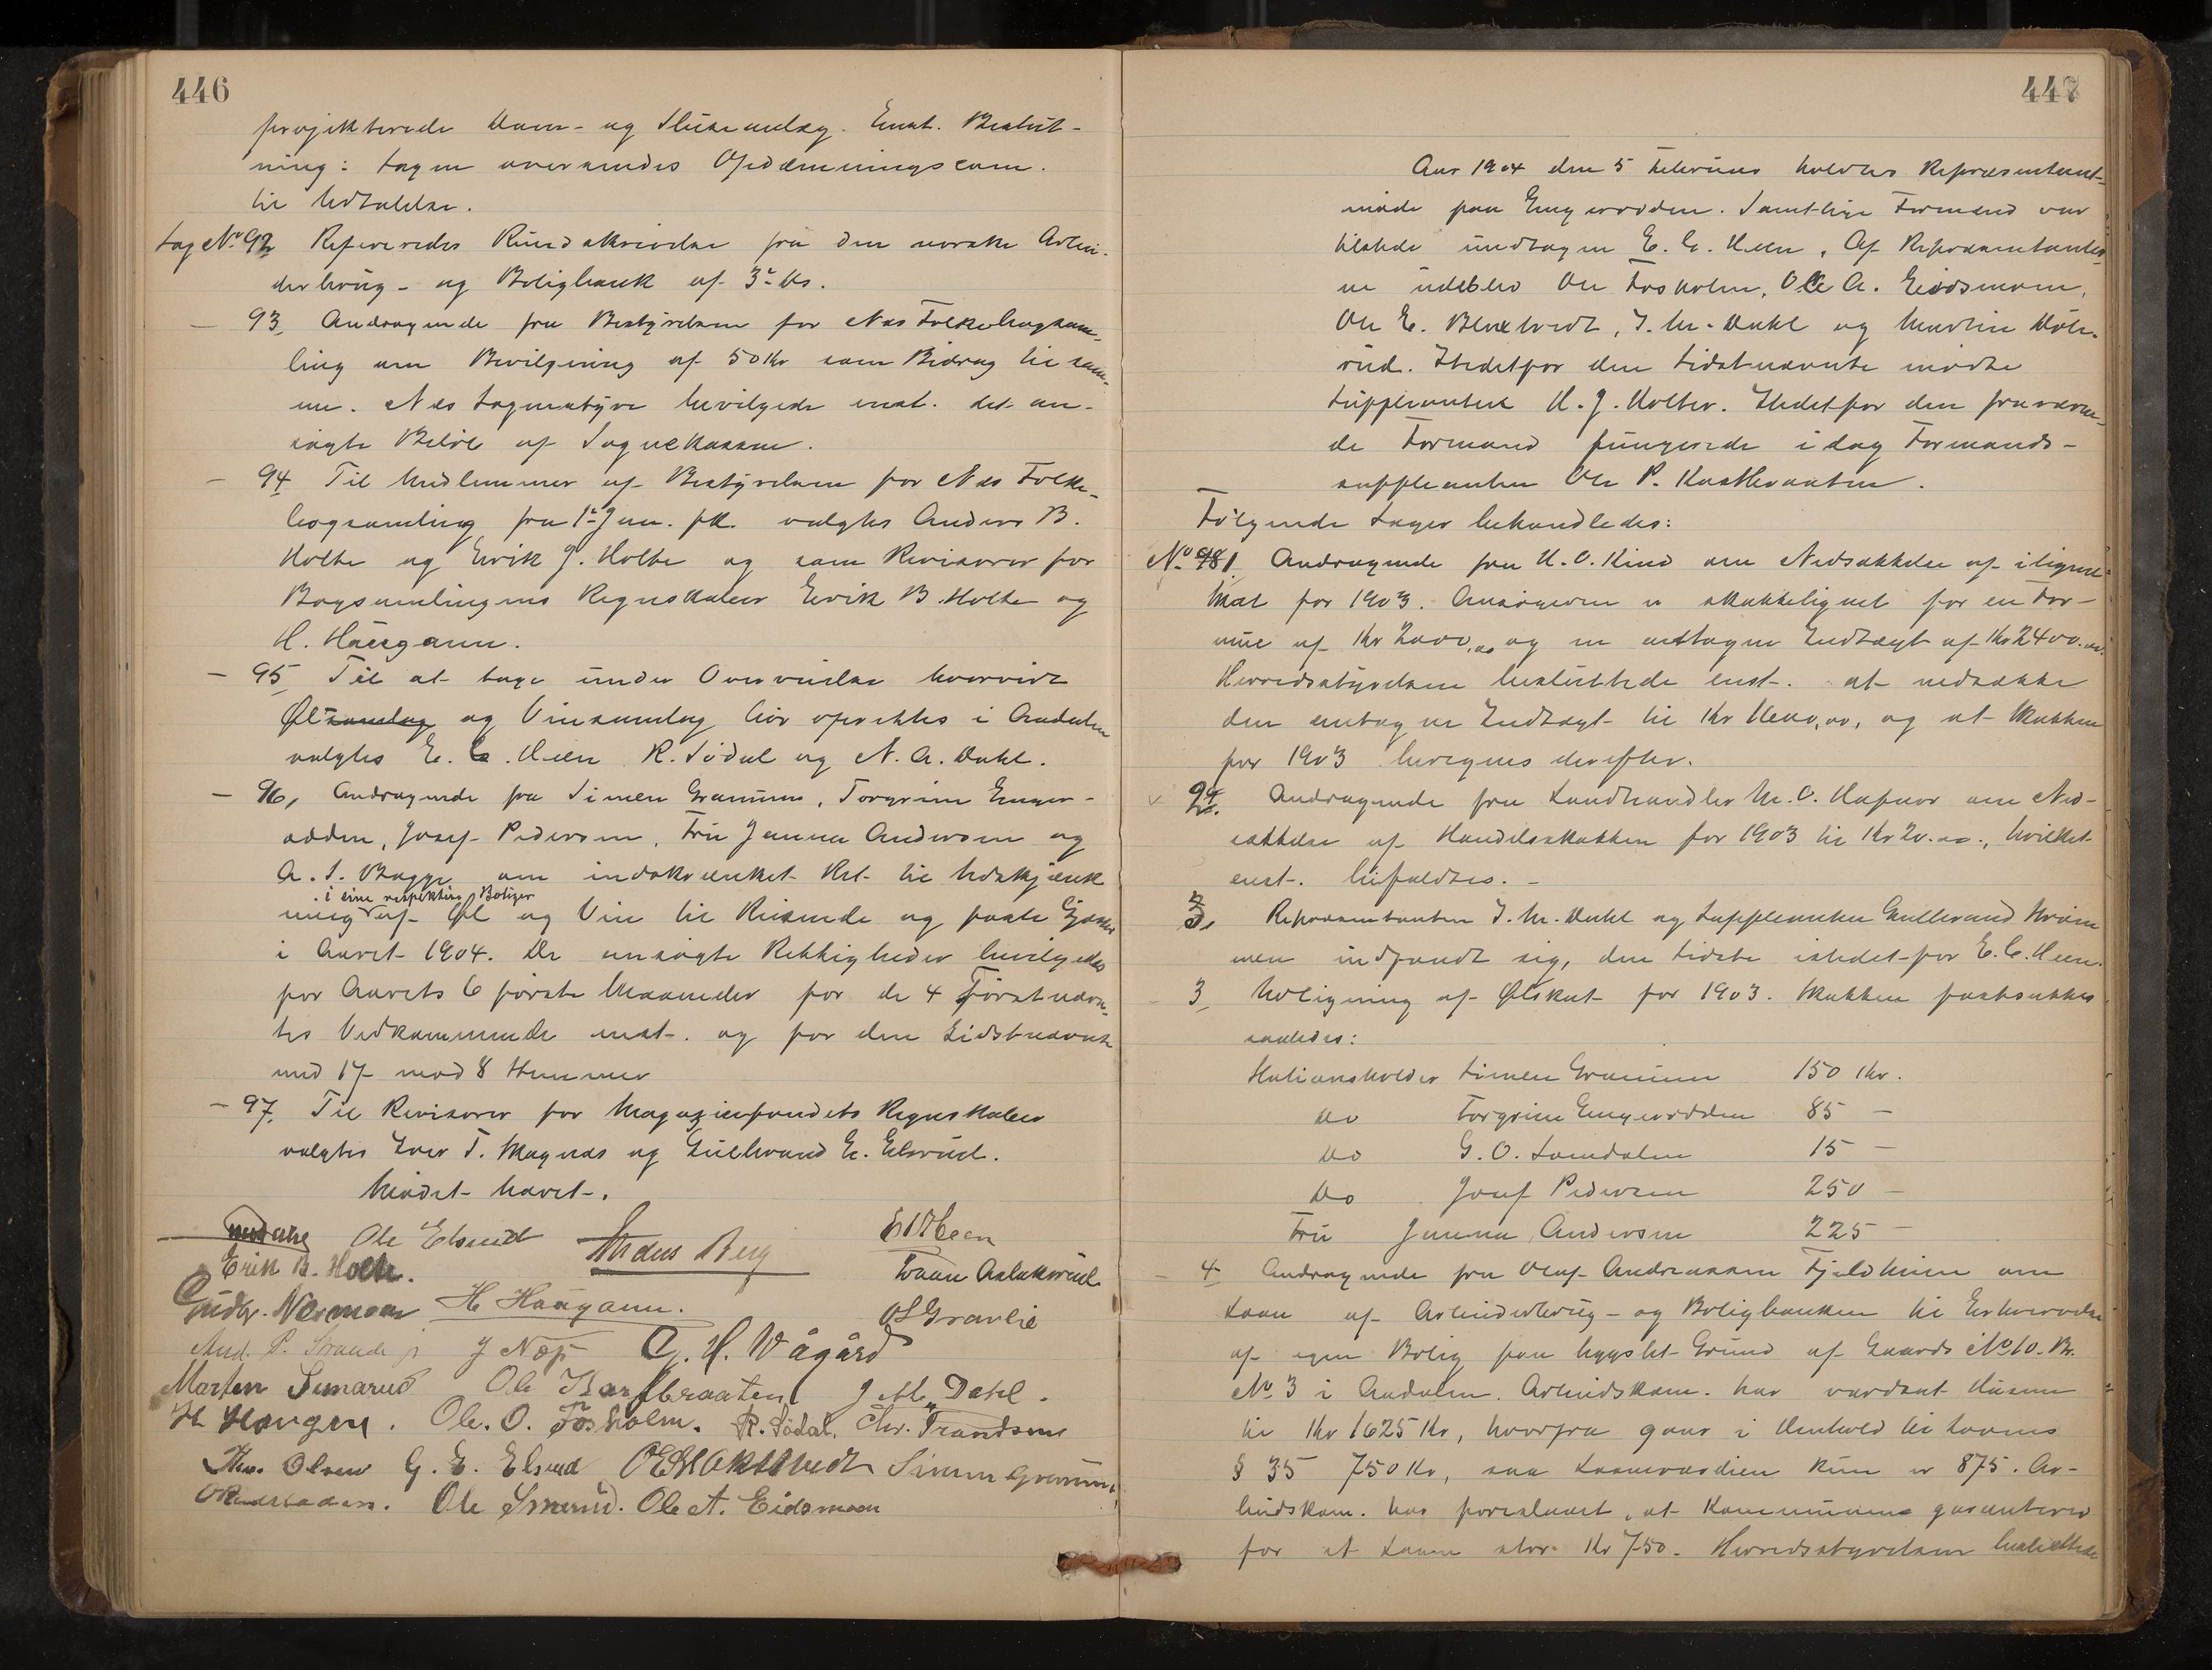 446
projekterede Dam- og Sluseanlæg. Enst. Beslut-
ning: Sagen oversendes Opdæmningscom.
til Udtalelse.
Sag No. 92 Refereredes Rundskrivelse fra den norske Arbei-
derbrug- og Boligbank af 3de ds.
— 93, Andragende fra Bestyrelsen for Næs Folkebogsam-
ling om Bevilgning af 50 Kr som Bidrag til sam-
me. Næs Sognestyre bevilgede enst. det an-
søgte Beløb af Sognekassen.
— 94 Til Medlemmer af Bestyrelsen for Næs Folke-
bogsamling fra 1ste Jan. fk. valgtes Anders B.
Holte og Erik J. Holte og som Revisorer for
Bogsamlingens Regnskaber Erik B. Holte og
H. Haugann.
— 95 Til at tage under Overveielse hvorvidt
Øl- samlag og Vinsamlag bør oprettes i Aadalen
valgtes E. C. Meen R. Sødal og N. A. Dahl.
— 96, Andragende fra Simen Granum, Torgrim Enger-
odden, Josef Pedersen, Fru Jenna Andersen og
A. S. Bagge om indskrænket Ret til Udskjænk-
i sine respektive Boliger
ning af Øl og Vin til Reisende og faste Gjæster
i Aaret 1904. De ansøgte Rettigheder bevilgedes
for Aarets 6 første Maaneder for de 4 Førstnævn-
tes Vedkommende enst. og for den Sidstnævnte
med 17 mod 8 Stemmer
— 97. Til Revisorer for Magazinfondets Regnskaber
valgtes Iver T. Magnæs og Gulbrand E. Elsrud.
Mødet hævet.
Ole Elsrud Anders Berg E C Meen
Erik B. Holte. Aslaksrud
Gudbr. Næsmoen H Haugann. O S Gravlie
And. P. Strande jr J Næss A. H. Vågård
Morten Semerud Ole Kastbraaten J M. Dahl.
H Haugen. Ole. O. Fosholm. R. Sødal. Chr. Trandsen
Olsen G. E. Elsrud O E Blakstvedt Simen Granum,
Ole Smerud. Ole A. Eidsmoen
447
Aar 1904 den 5 Februar holdtes Repræsentant-
møde paa Engerodden. Samtlige Formænd var
tilstede undtagen E. C. Meen. Af Repræsentanter-
ne udeblev Ole Fosholm, Ole A. Eidsmoen,
Ole E. Blakstvedt, J. M. Dahl og Martin Døle-
rud. Istedetfor den Sidstnævnte mødte
Suppleanten H. J. Holter. Istedetfor den fraværen-
de Formand fungerede idag Formands-
suppleanten Ole P. Kastbraaten.
Følgende Sager behandledes:
No. 98 1. Andragende fra H. O. Kind om Nedsættelse af ilignet
Skat for 1903. Ansøgeren er skatteligned for en For-
mue af Kr 2000,00 og en antagen Indtægt af Kr 2400.00.
Herredsstyrelsen besluttede enst. at nedsætte
den antagne Indtægt til Kr 00,00, og at Skatten
for 1903 beregnes derefter.
2. Andragende fra Landhandler M. O. Hafnor om Ned-
sættelse af Handelsskatten for 1903 til Kr 20.00., hvilket
enst. bifaldtes. —
3, Repræsentanten J. M. Dahl og Suppleanten Gulbrand Strøm-
men indfandt sig, den Sidste istedetfor E. C. Meen.
3 Udligning af Ølskat for 1903. Skatten fastsattes
saaledes:
Stationsholder Simen Granum 150 Kr.
Do Torgrim Engerodden 85 —
Do G. O. Somdalen 15 —
Do Josef Pedersen 250 —
Fru Jenna Andersen 225 —
— 4 Andragende fra Olaf Andreassen Fjeldheim om
Laan af Arbeiderbrug- og Boligbanken til Erhvervelse
af egen Bolig paa bygslet Grund af Gaards No 10. Br.
No 3 i Aadalen. Arbeidskom. har værdsat Husene
til Kr 1625 Kr, hvorfra gaar i Henhold til Lovens
§ 35 750 Kr, saa Laaneværdien kun er 875. Ar-
beidskom. har foreslaaet, at Kommunen garanterer
for et Laan stor Kr 750. Herredsstyrelsen besluttede